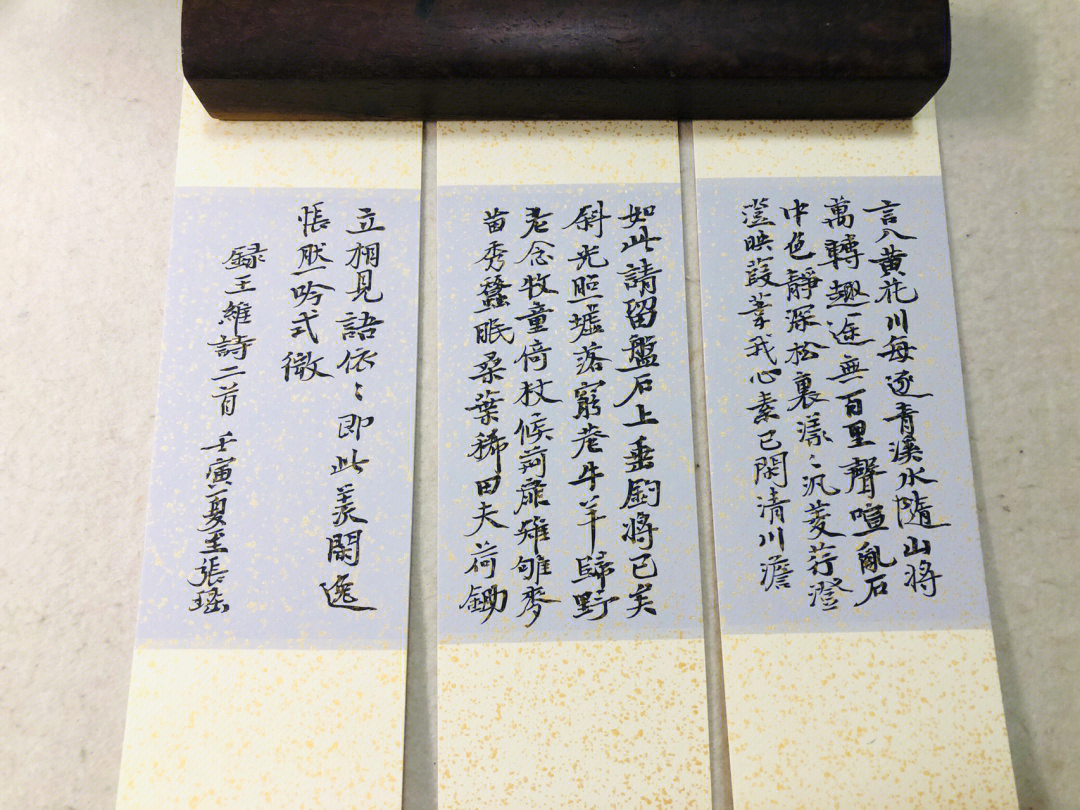 言入黄花川每逐青溪水隨山將
萬轉趣途無百里聲喧亂石
中色靜深松裏漾〻汎菱荇澄
澄映葭葦我心素已閑清川澹
如此請留盤石上垂釣將已矣
斜光照墟落窮巷牛羊歸野
老念牧童倚杖候荊扉雉雊麥
苗秀蠶眠桑葉稀田夫荷鋤
立相見語依〻即此羨閑逸
悵然吟式微
録王維詩二首 壬寅夏至張瑤